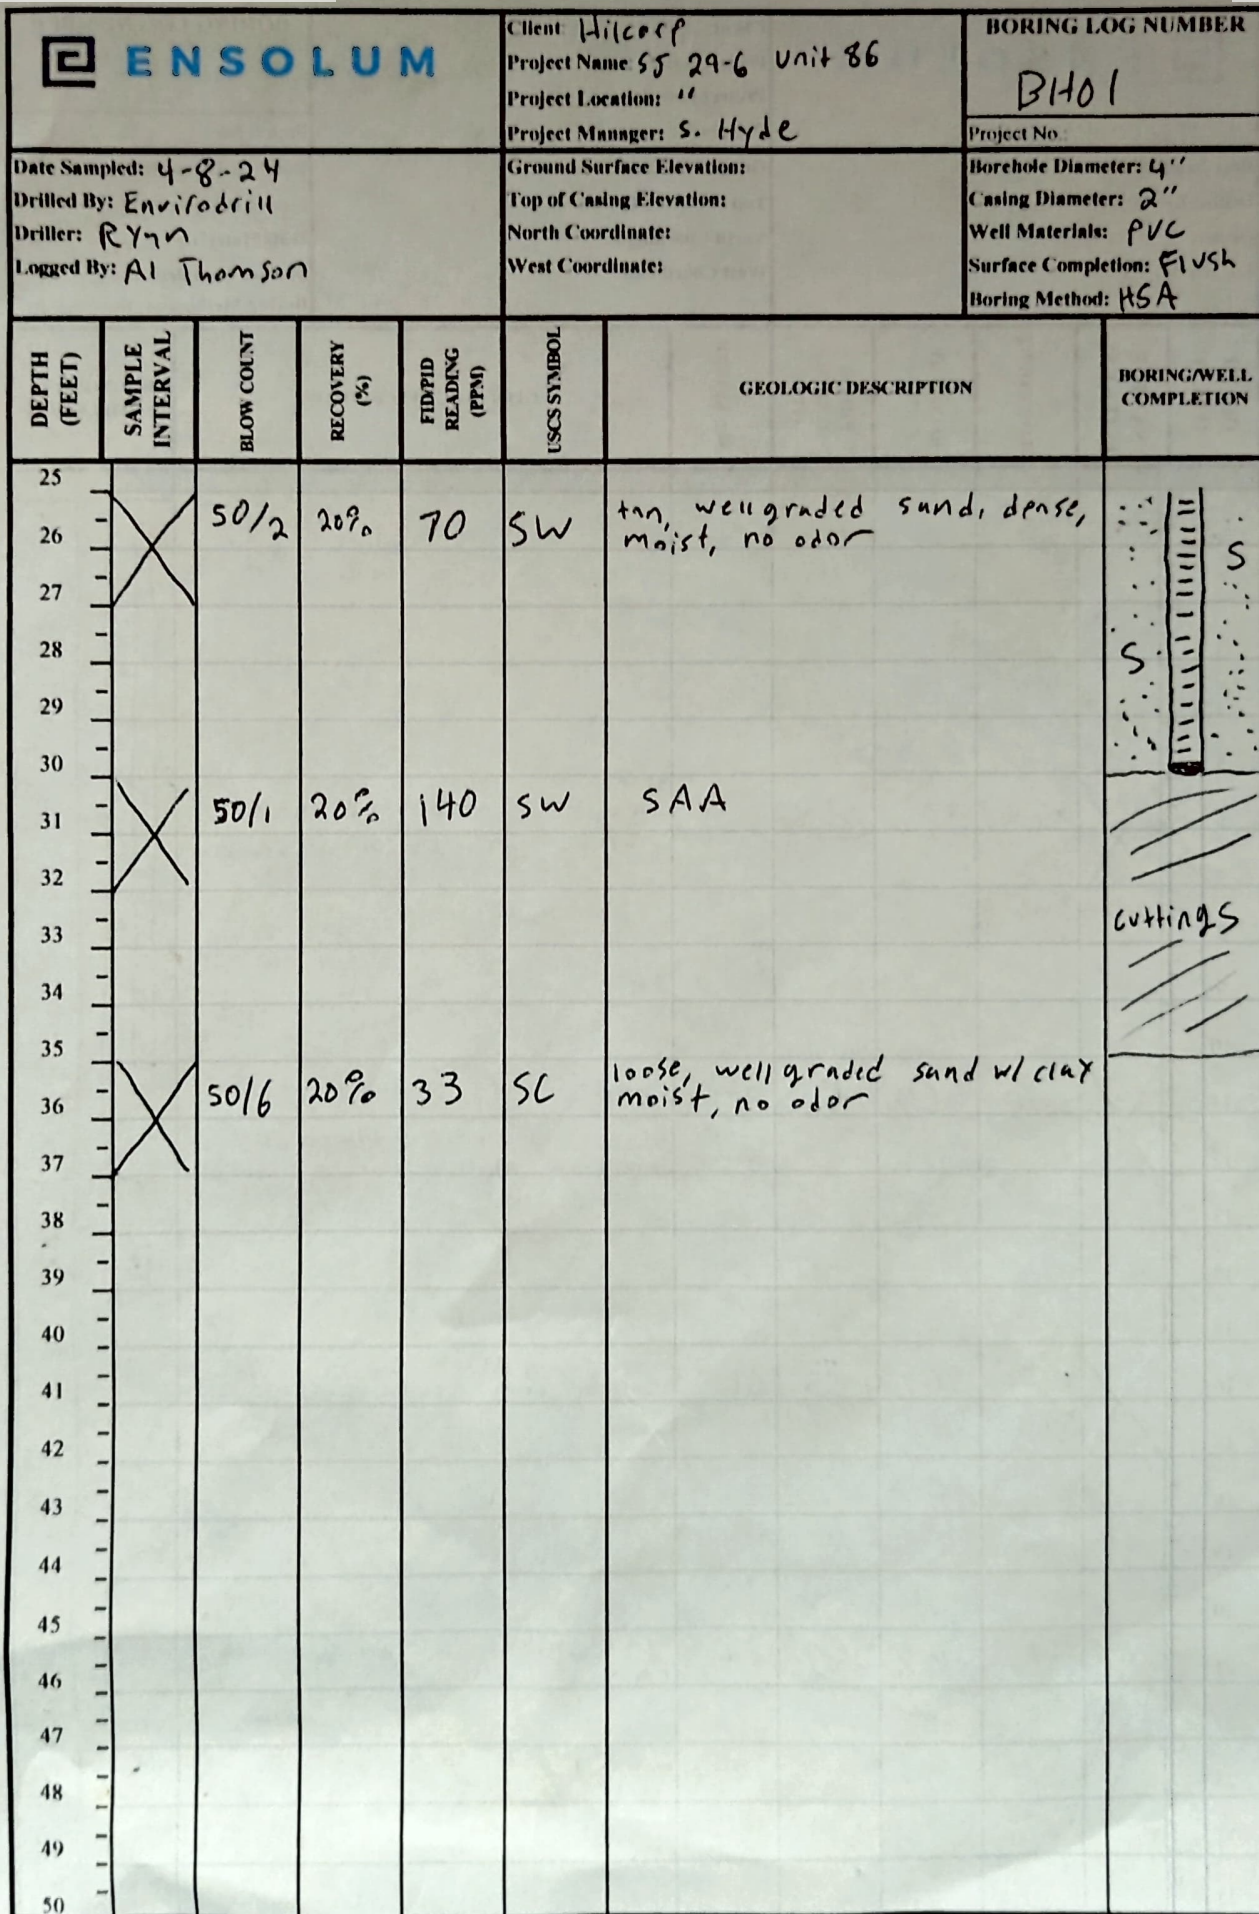 ENSOLUM
Client: Hilcorp
Project Name: SJ 29-6 Unit 86
Project Location: "
Project Manager: S. Hyde
BORING LOG NUMBER
BH01
Project No.:
Date Sampled: 4-8-24
Drilled By: Envirodrill
Driller: Ryan
Logged By: Al Thomson
Ground Surface Elevation:
Top of Casing Elevation:
North Coordinate:
West Coordinate:
Borehole Diameter: 4''
Casing Diameter: 2''
Well Materials: PVC
Surface Completion: Flush
Boring Method: HSA
DEPTH (FEET)
SAMPLE INTERVAL
BLOW COUNT
RECOVERY (%)
FID/PID READING (PPM)
USCS SYMBOL
GEOLOGIC DESCRIPTION
BORING/WELL COMPLETION
25
50/2 20% 70 SW tan, well graded sand, dense,
26 moist, no odor S
27
28 S
29
30
31 50/1 20% 140 SW SAA
32
33 cuttings
34
35
loose, well graded sand w/ clay
36 50/6 20% 33 SC moist, no odor
37
38
39
40
41
42
43
44
45
46
47
48
49
50